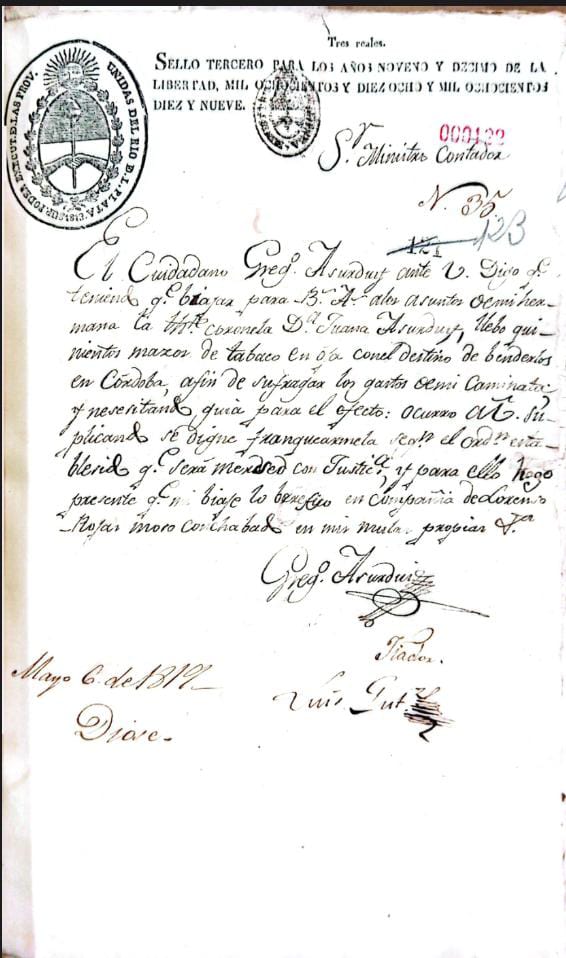 Tres reales.
SELLO TERCERO PARA LOS AÑOS NOVENO Y DECIMO DE LA
LIBERTAD, MIL OCHOCIENTOS Y DIEZ OCHO Y MIL OCHOCIENTOS
DIEZ Y NUEVE.
SUP. PODER EXECUT. D. LAS PROV. UNIDAS DEL RIO D. L. PLATA. 1813
Sr. Ministro Contador
N. 35,,
121 123
El Cuidadano Grego. Asurduy ante V. Digo qe.
teniendo qe. biajar para Bs. As. a los asuntos de mi her-
mana la Thte. Coronela Da. Juana Asurduy, llebo qui-
nientos mazos de tabaco en oja con el destino de benderlos
en Córdoba, a fin de sufragar los gastos de mi Caminata:
y nesesitando guia para el efecto: ocurro a V. su-
plicando se digne franquearmela segn. el ordn. esta-
blesido qe. será mersed con Justica. y para ello hago
presente qe. mi biaje lo berefico en Compañia de Lorenso
Rojas moso conchabado en mis mulas propias &a.
Grego. Asurduy
Fiador.
Mayo 6. de 1819,,
Luis Gut.
Diose.